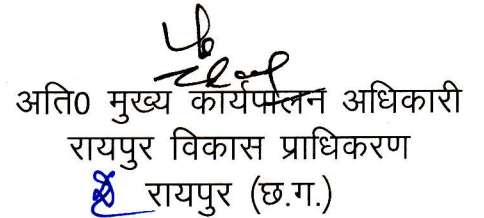 अति0 मुख्य कार्यपालन अधिकारी
रायपुर विकास प्राधिकरण
रायपुर (छ.ग.)